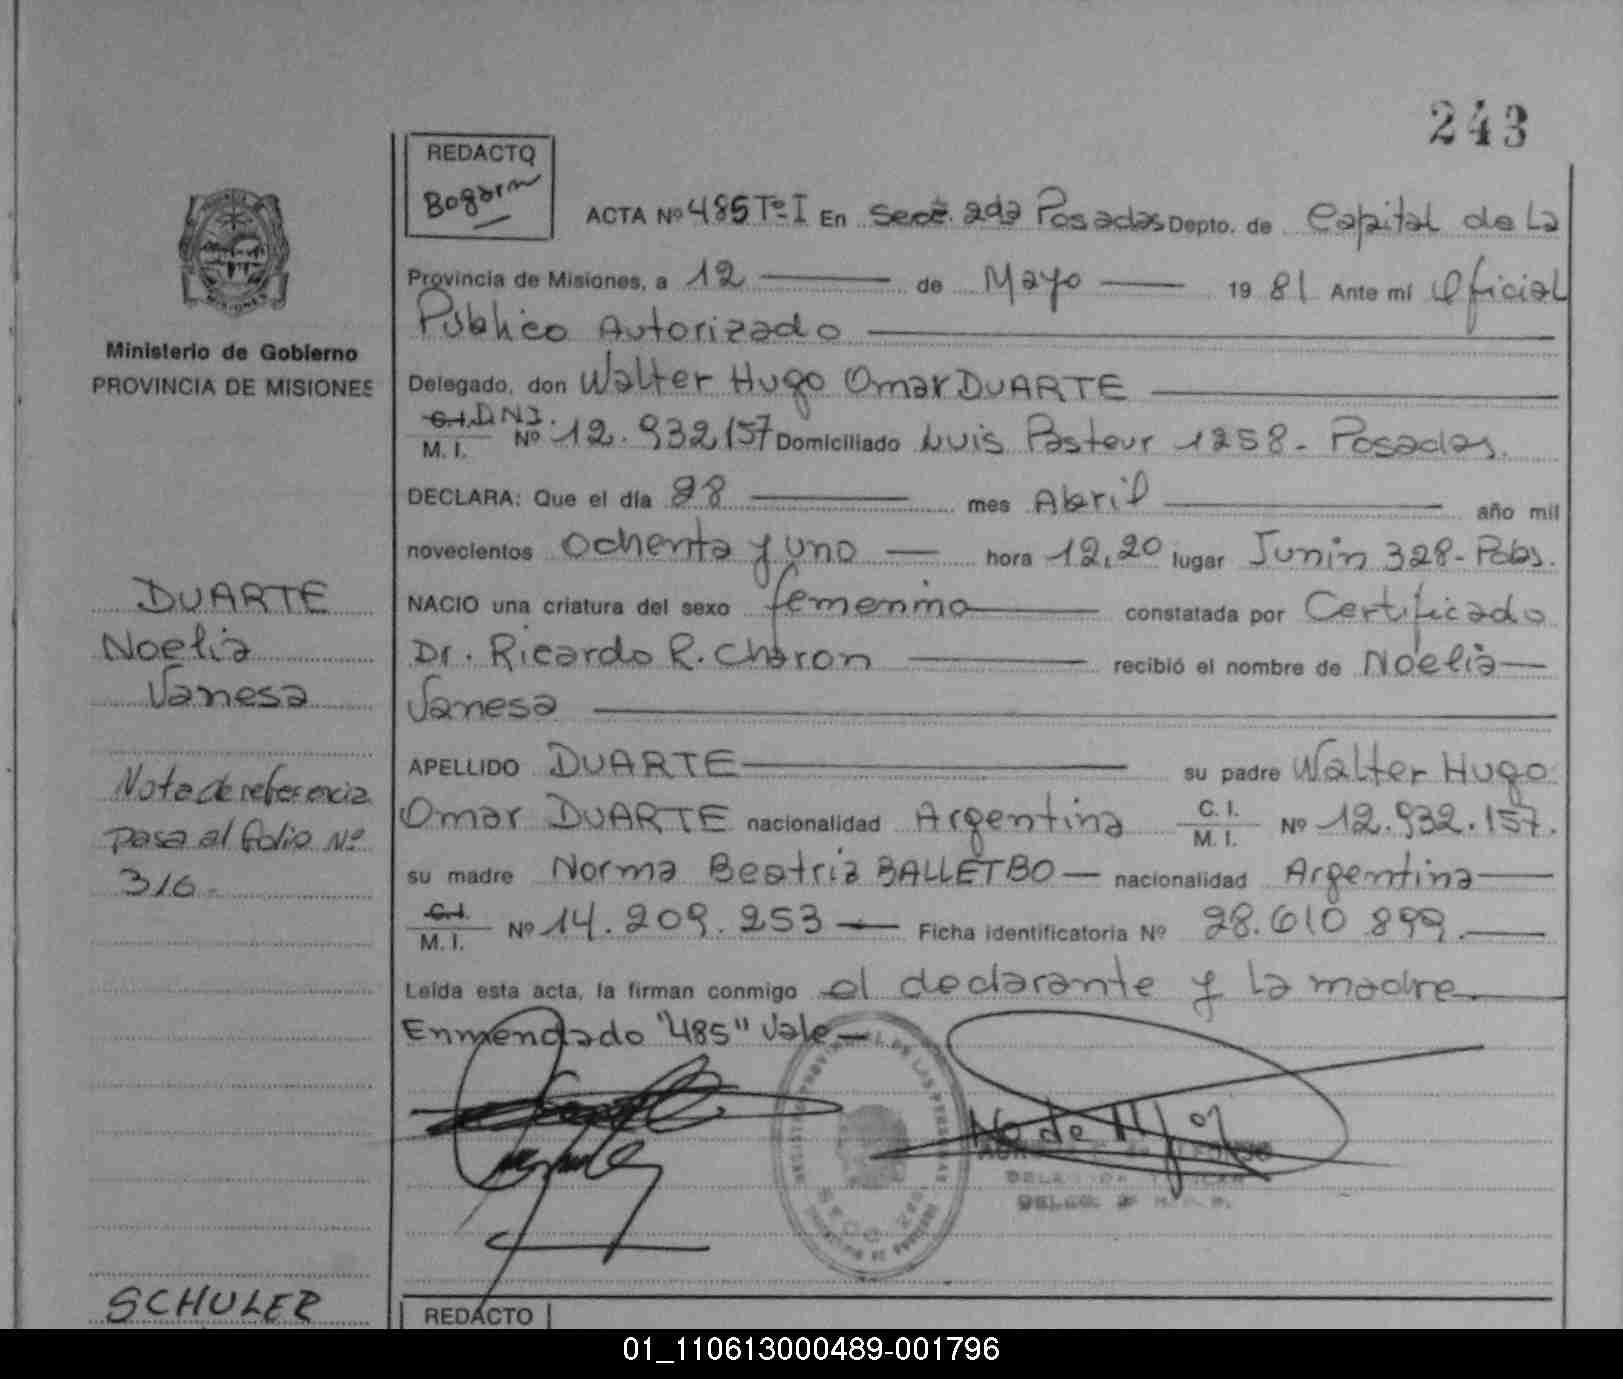 243
REDACTO
Bogarin
ACTA Nº 485 Tº I En Secc. 2da Posadas Depto. de Capital de La
Provincia de Misiones, a 12 de Mayo 1981 Ante mí Oficial
Público Autorizado
Ministerio de Gobierno
PROVINCIA DE MISIONES
Delegado, don Walter Hugo Omar DUARTE
C.I. D N I.
M. I. Nº 12.932.157 Domiciliado Luis Pasteur 1258 - Posadas.
DECLARA: Que el día 28 mes Abril año mil
novecientos ochenta y uno hora 12,20 lugar Junin 328 - Pdas.
NACIO una criatura del sexo femenino constatada por Certificado
Dr. Ricardo R. Charon recibió el nombre de Noelia
Vanesa
DUARTE
Noelia
Vanesa
APELLIDO DUARTE su padre Walter Hugo
Omar DUARTE nacionalidad Argentina C. I. M. I. Nº 12.932.157.
su madre Norma Beatriz BALLETBO nacionalidad Argentina
C.I. M. I. Nº 14.209.253 Ficha identificatoria Nº 28.610.899.
Nota de referencia
pasa al folio Nº
316.
Leída esta acta, la firman conmigo el declarante y la madre
Enmendado "485" Vale
SCHULER
REDACTO
01_110613000489-001796